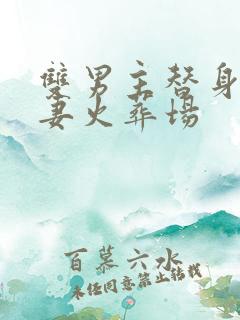 雙男主替身
妻火葬場
百慕六水
未任同意禁止转载